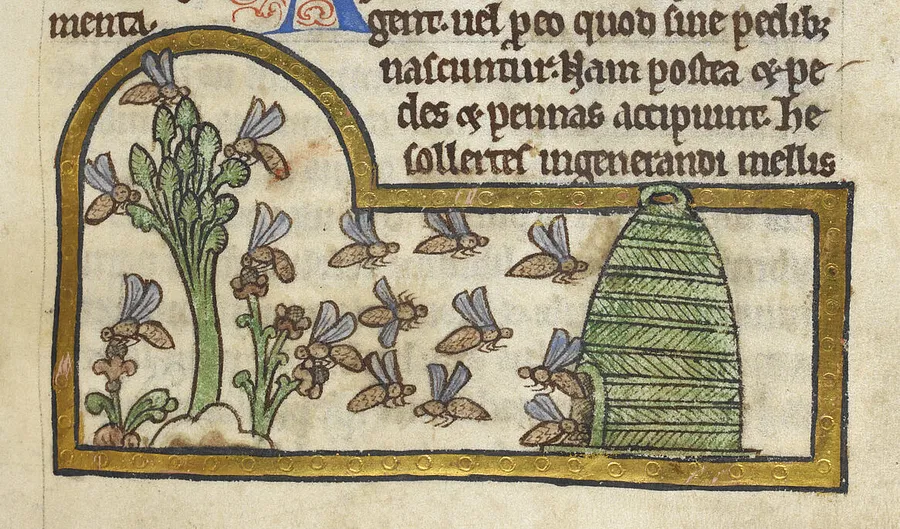 menta.
gent. uel ꝓeo quod sine pedibꝫ
nascuntur. Nam postea & pe
des & pennas accipiunt. he
sollertes ingenerandi mellis